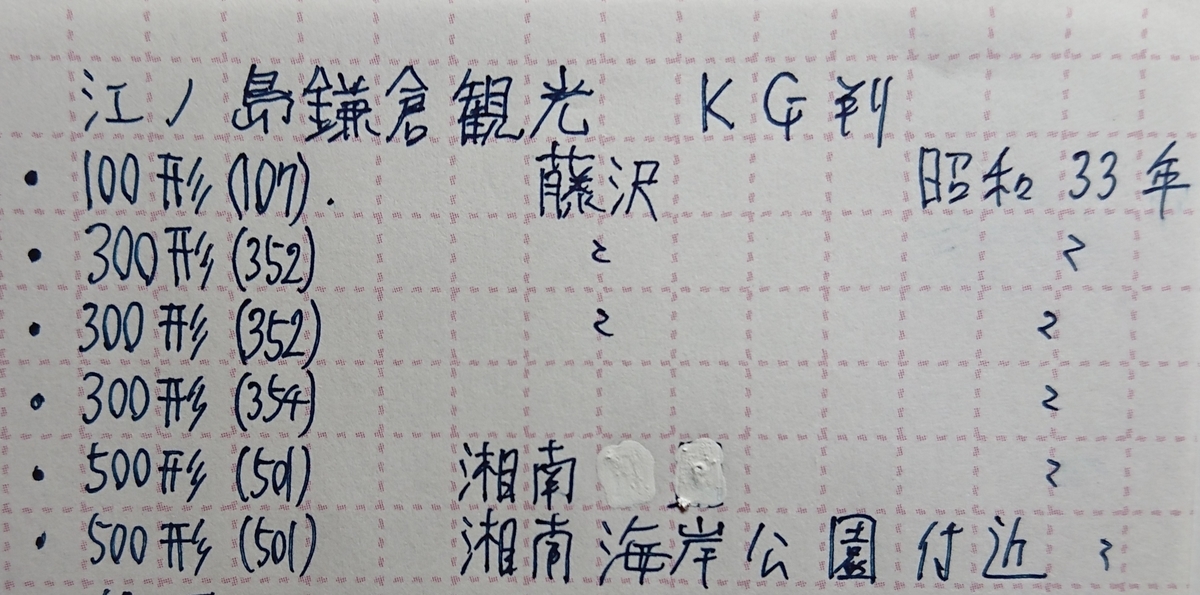 江ノ島鎌倉観光 KG判
・100形(107). 藤沢 昭和33年
・300形(352) 〃 〃
・300形(352) 〃 〃
・300形(354) 〃
・500形(501) 湘南 〃
・500形(501) 湘南海岸公園付近 〃